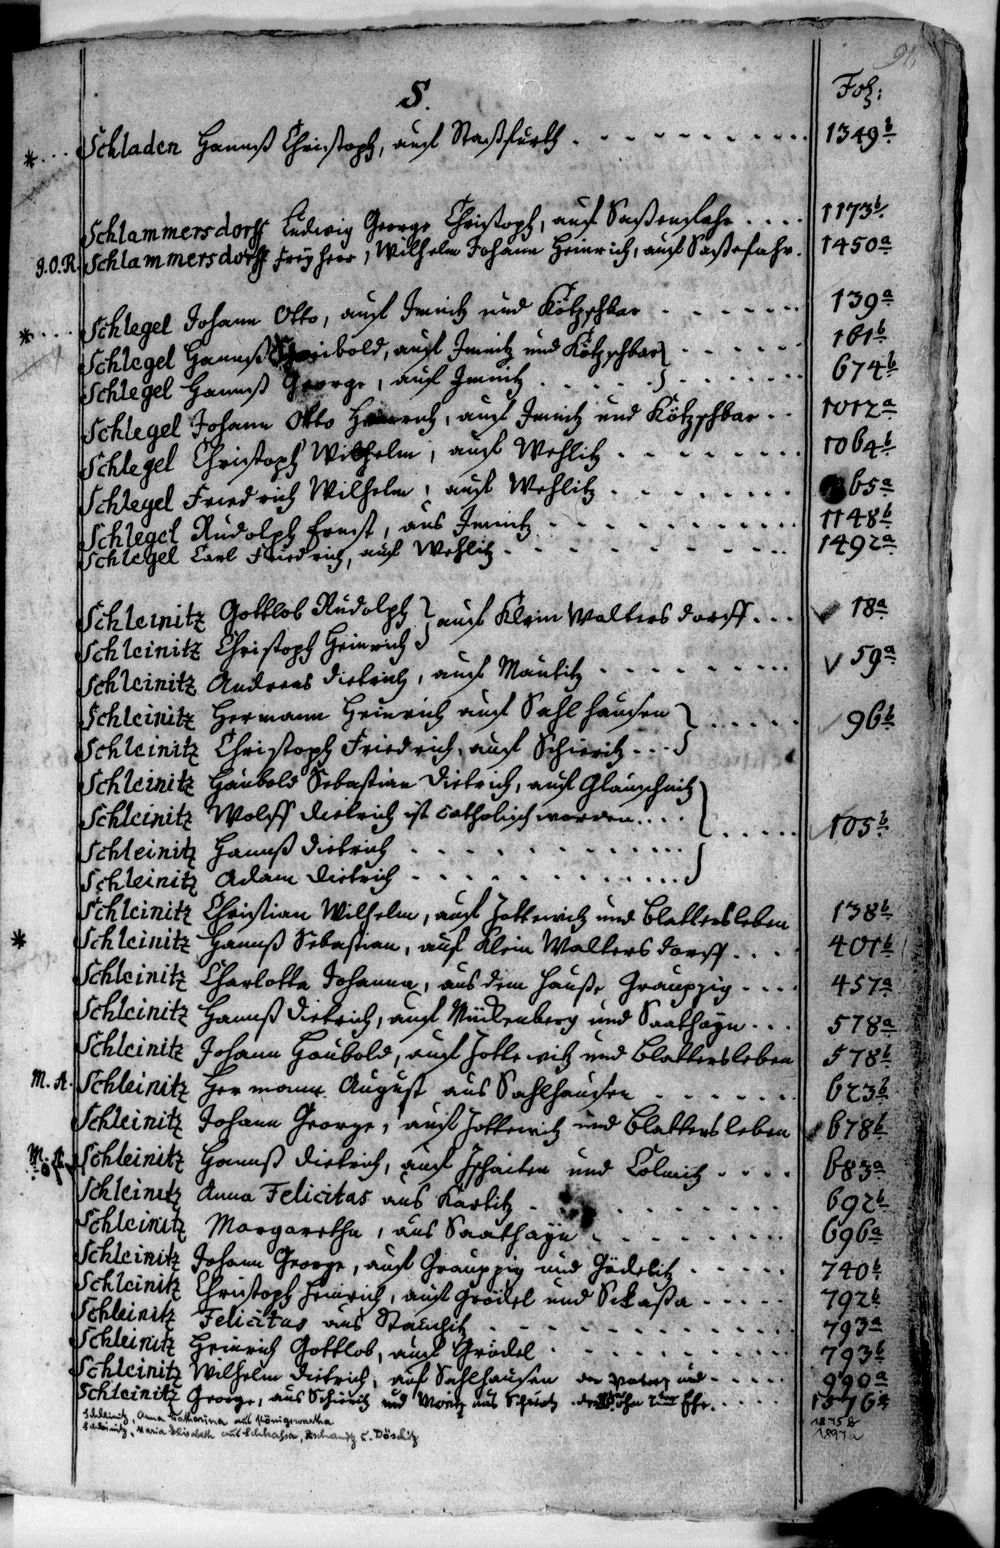 S.
Fol:
* Schladen Hannß Christoph, auf Staßfurth 1349b
Schlammersdorff Ludwig George Christoph, auf 1173b
J.O.R. Schlammersdorff Freyherr, Wilhelm Johann Heinrich, auf 1450a
* Schlegel Johann Otto, auf Imnitz und Kötzschbar 139a
Schlegel Hannß auf Imnitz und Kötzschbar 161b
Schlegel Hannß George, auf Imnitz 674b
Schlegel Johann Otto Heinrich, auf Imnitz und Kötzschbar 1012a
Schlegel Christoph Wilhelm, auf Wehlitz 1064b
Schlegel Friedrich Wilhelm, auf Wehlitz 65a
Schlegel Rudolph Ernst, aus Imnitz 1148b
Schlegel Carl Friedrich, auf Wehlitz 1492a
Schleinitz Gottlob Rudolph } auf Klein Waltersdorff 18a
Schleinitz Christoph Heinrich
Schleinitz Andreas Dietrich, auf Mautitz 59a
Schleinitz Hermann Heinrich auf Sahlhausen 96b
Schleinitz Christoph Friedrich, auf Schieritz
Schleinitz Haubold Sebastian Dietrich, auf Glauschnitz
Schleinitz Wolff Dietrich ist catholisch worden 105b
Schleinitz Hannß Dietrich
Schleinitz Adam Dietrich
Schleinitz Christian Wilhelm, auf Jottewitz und Blattersleben 138b
* Schleinitz Hannß Sebastian, auf Klein Waltersdorff 401b
Schleinitz Charlotta Johanna, aus dem Hauße Grauppzig 457a
Schleinitz Hannß Dietrich, auf Mückenberg und Saathayn 578a
Schleinitz Johann Haubold, auf Jottewitz und Blattersleben 578b
M. A. Schleinitz Hermann August aus Sahlhausen 623b
Schleinitz Johann George, auf Jottewitz und Blattersleben 678b
Schleinitz Hannß Dietrich, auf Zschaiten und Colmitz 683a
Schleinitz Anna Felicitas aus Karlitz 692b
Schleinitz Margaretha, aus Saathayn 696a
Schleinitz Johann George, auf Grauppzig und Gödelitz 740b
Schleinitz Christoph Heinrich, auf Grödel und Seltaßa 792b
Schleinitz Felicitas aus Stauchitz 793a
Schleinitz Heinrich Gottlob, auf Grödel 793b
Schleinitz Wilhelm Dietrich, auf Sahlhausen der Vater und 990a
Schleinitz George, aus Schieritz und aus Schieritz der Sohn 2ter Ehe. 1576a
Schleinitz, Anna Catharina aus Königswartha 1875b
Schleinitz, Maria Elisabeth aus Schkassa, Zschanitz u. Döschitz 1897a